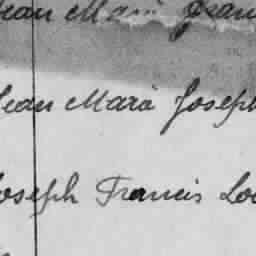 Jean Marie Fran
Jean Marie Joseph
Joseph Francis Lou